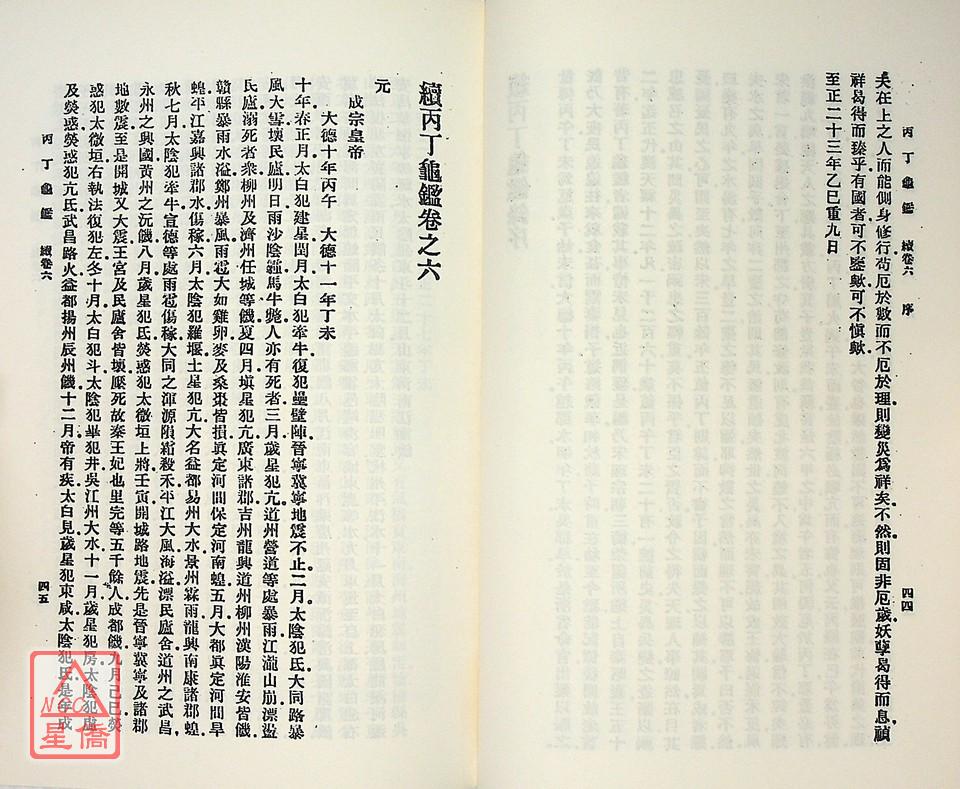 丙丁龜鑑　續卷六　序
四四
夫在上之人而能側身修行苟厄於數而不厄於理則變災為祥矣不然則固非厄歲妖孽曷得而息禎
祥曷得而臻乎有國者可不鑒歟可不愼歟
至正二十三年乙巳重九日
續丙丁龜鑑卷之六
元
成宗皇帝
大德十年丙午　大德十一年丁未
十年春正月太白犯建星閏月太白犯牽牛復犯壘壁陣晉寧冀寧地震不止二月太陰犯氐大同路暴
風大雪壞民廬明日雨沙陰霾馬牛斃人亦有死者三月歲星犯亢道州營道等處暴雨江瀧山崩漂盪
民廬溺死者衆柳州及濟州任城等饑夏四月塡星犯亢廣東諸郡吉州龍興道州柳州漢陽淮安皆饑
贛縣暴雨水溢鄭州暴風雨雹大如雞卵麥及桑棗皆損眞定河間保定河南蝗五月大都眞定河間旱
蝗平江嘉興諸郡水傷稼六月太陰犯羅堰土星犯亢大名益都易州大水景州霖雨龍興南康諸郡蝗
秋七月太陰犯牽牛宣德等處雨雹傷稼大同之渾源隕霜殺禾平江大風海溢漂民廬舍道州之武昌
永州之興國黃州之沅饑八月歲星犯氐熒惑犯太微垣上將壬寅開城路地震先是晉寧冀寧及諸郡
地數震至是開城又大震王宮及民廬舍皆壞壓死故秦王妃也里完等五千餘人成都饑九月己巳熒
惑犯太微垣右執法復犯左冬十月太白犯斗太陰犯畢犯井吳江州大水十一月歲星犯房太陰犯虛
及熒惑熒惑犯亢氐武昌路火益都揚州辰州饑十二月帝有疾太白見歲星犯東咸太陰犯氐是年成
丙丁龜鑑　續卷六
四五
NCC
星僑